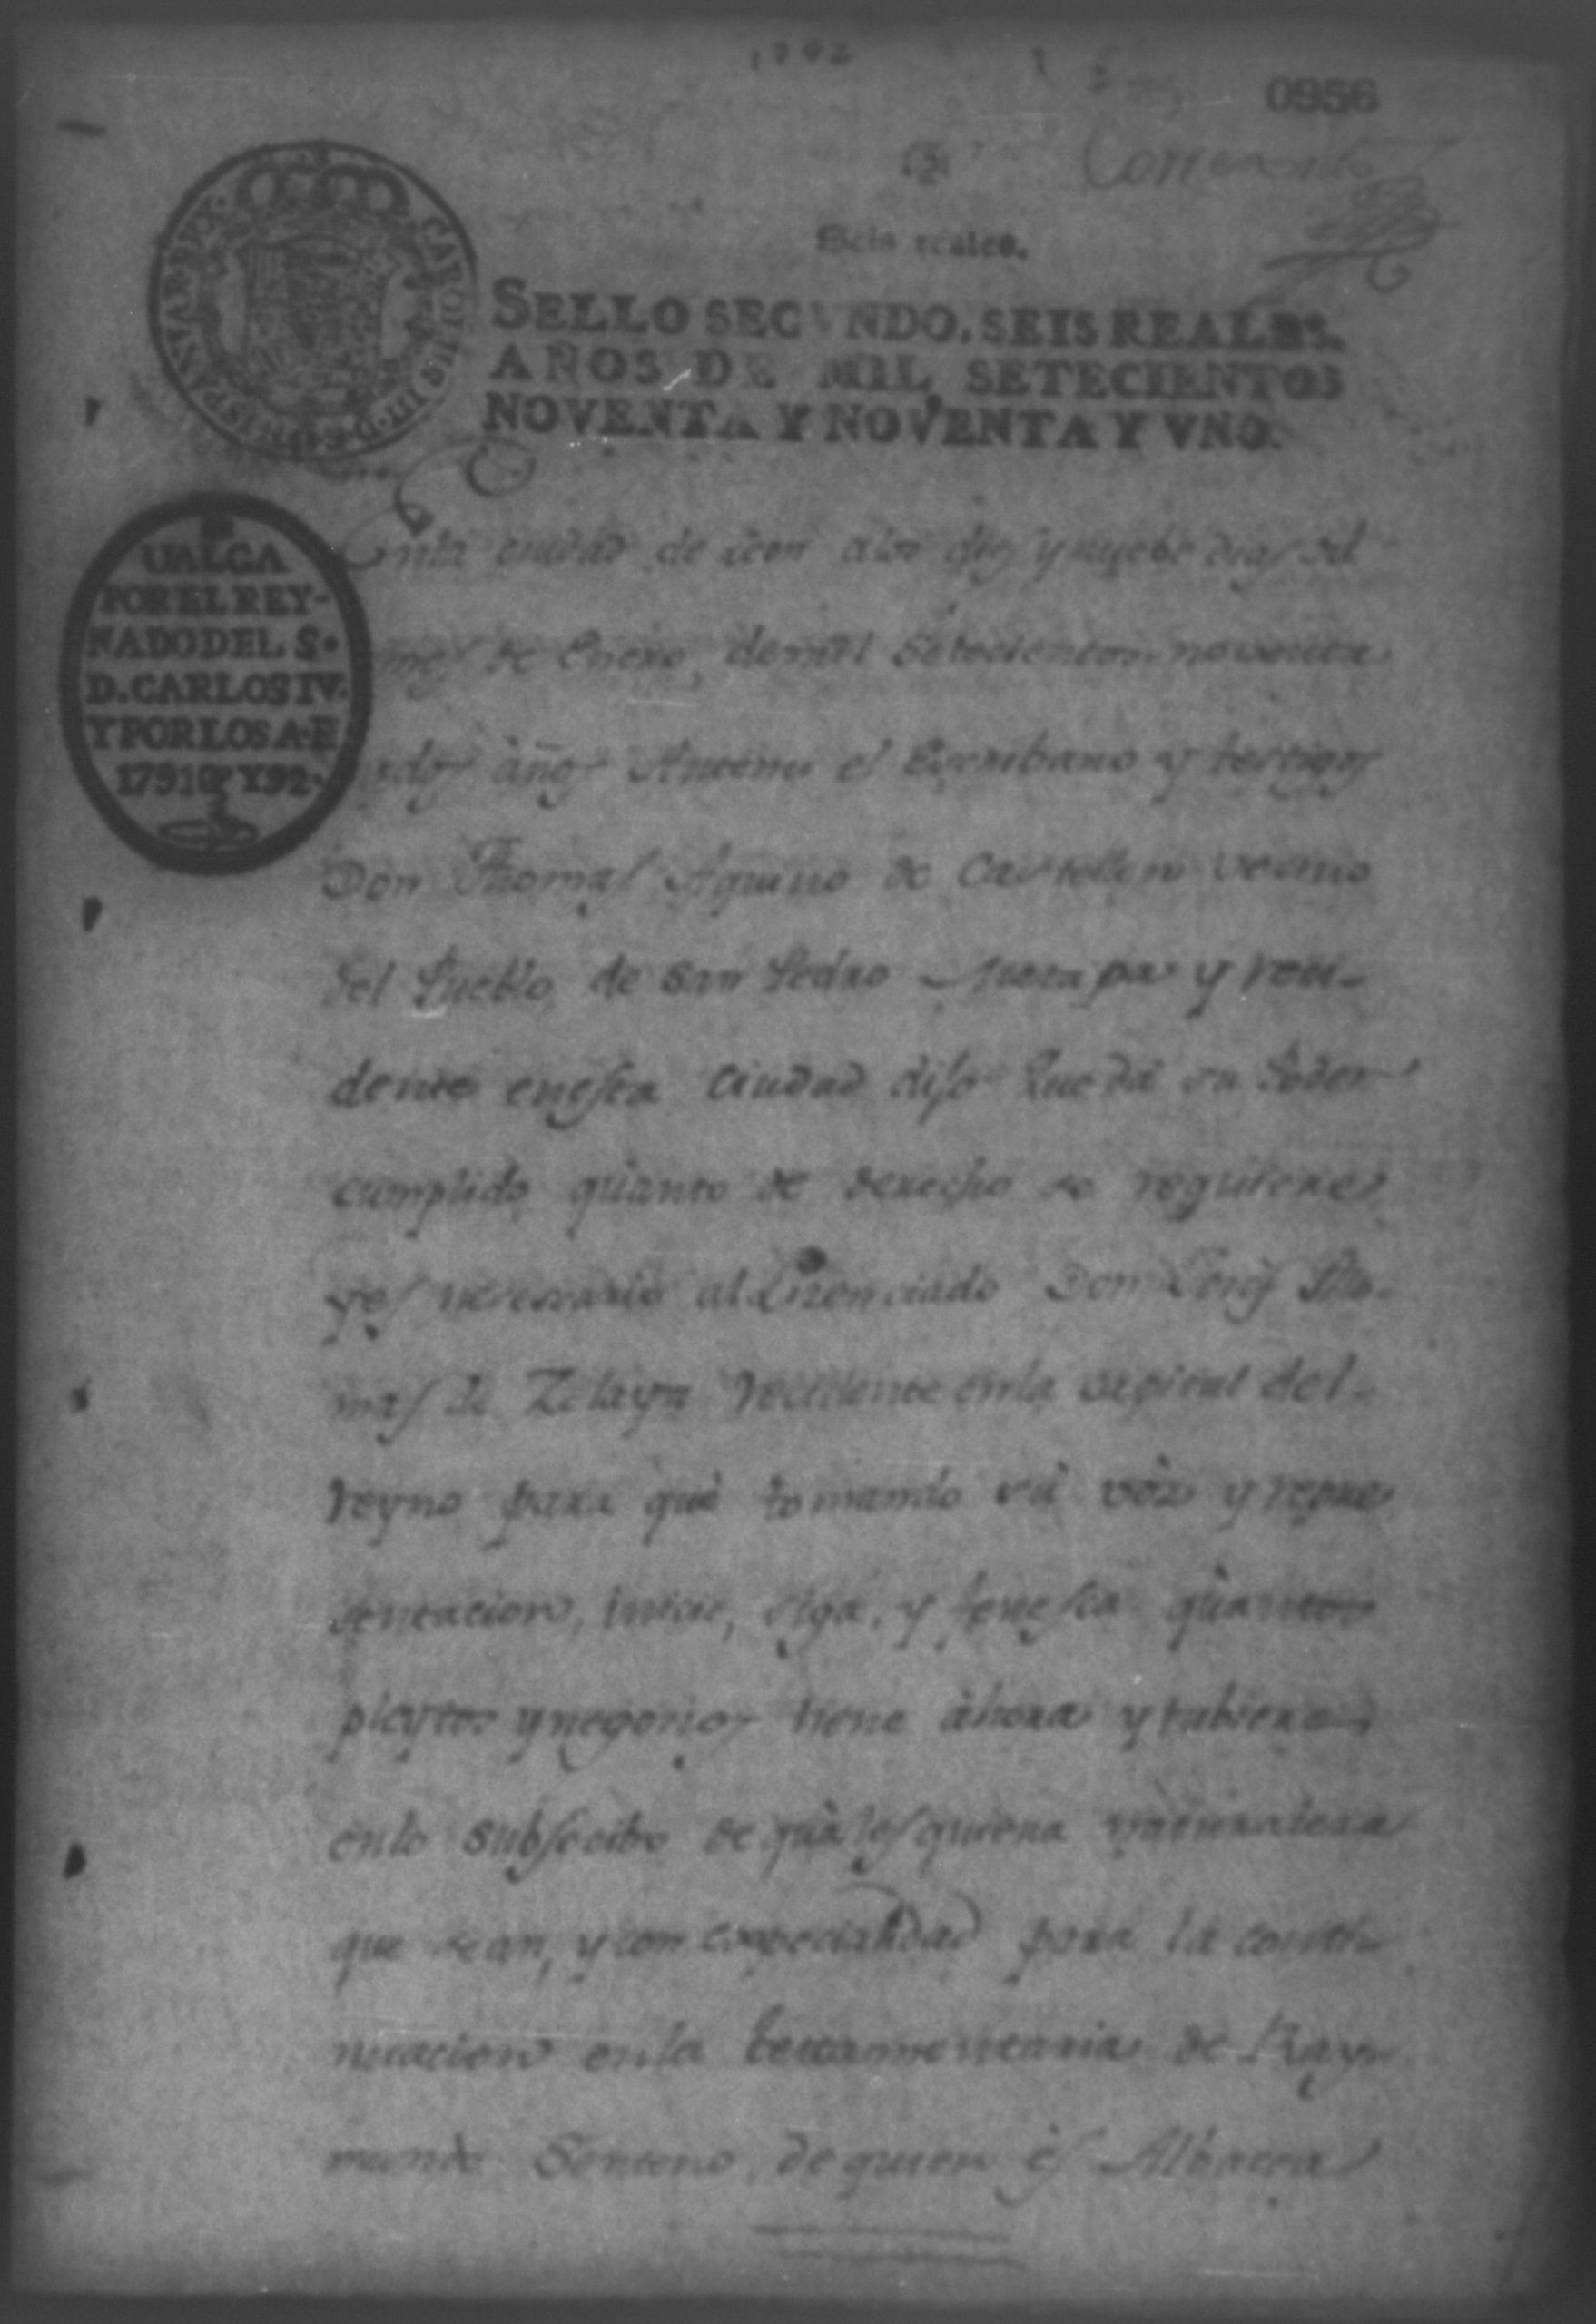 1792
0956
Corriente
Seis reales.
CAROLUS III D G HISPANIAR REX
SELLO SECVNDO, SEIS REALES,
AÑOS DE MIL SETECIENTOS
NOVENTA Y NOVENTA Y VNO.
UALGA
POR EL REY-
NADO DEL S.
D. CARLOS IV.
Y POR LOS A. E
1791 Y 92.
Enla ciudad de Leon alos diez ynuebe dias del
mes de Enero, demil setecientos noventa
y dos años Antemi el Escribano y testigos
Don Thomas Aquino de Castellon vecino
del Pueblo de San Pedro y reci-
dente enesta Ciudad dijo Que dá su Poder
cumplido quanto de derecho se requiere
yes necesario al Licenciado Don Tho-
mas de Zelaya recidente enla capital del
reyno para que tomando sú vóz y repre
sentacion, inicie, siga, y fenesca quantos
pleytos ynegocios tiene àhora ytubiere
enlo subsecibo de quàlesquiera ynaturaleza
que sean, y con especialidad para la conti-
nuacion enla testamentaria de Ray-
mundo Senteno, dequien és Albacea